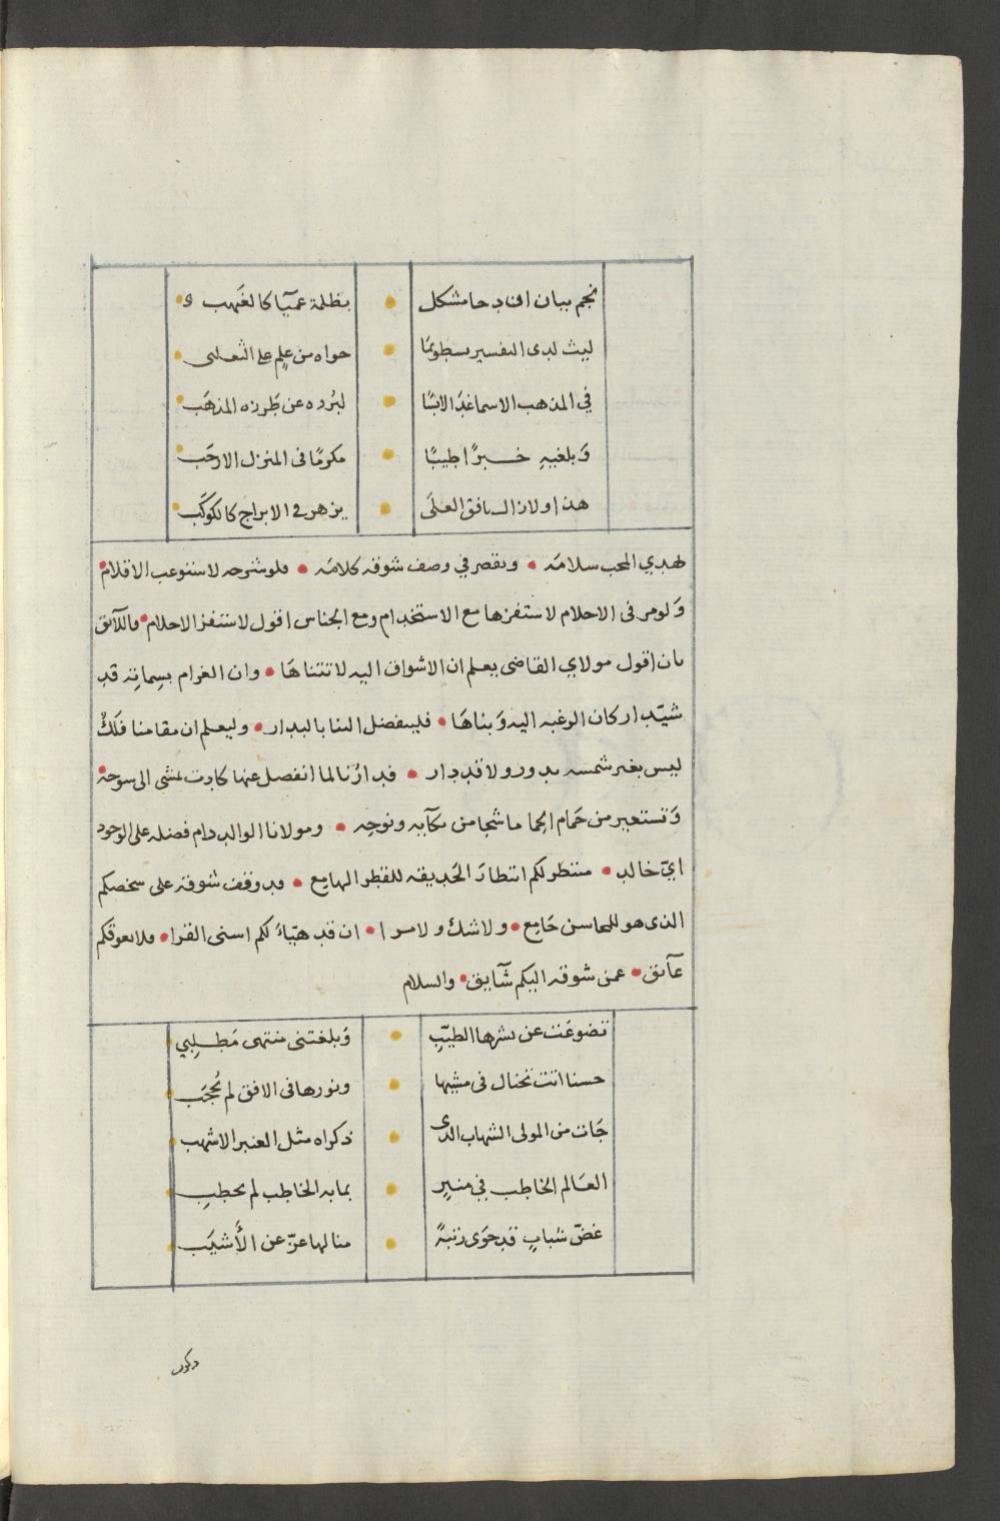 نجم بيان ان دحا مشكل • بظلمة عميآ كالغيهب
ليث لدى التفسير بسطو بما • حواه من علم على الثعلبى
في المذهب الاسما غدَا لابسًا • لبُرده عن طرزه المذهَب
وَبلغيهِ خبرًا طيبًا • مكرمًا فى المنزل الارحَب
هذا ولا زال بافق العلَى • يزهر فى الابراج كالكوكَب
يهدي المحب سلامَه • ويقصر في وصف شوقه كلامَه • فلو شرحه لاستوعب الاقلام
وَلو مر فى الاحلام لاستفزها مع الاستخدام ومع الجناس اقول لاستفز الاحلام • واللآئق
بان اقول مولاي القاضى يعلم ان الاشواق اليه لا تتناهَا • وان الغرام بسماته قد
شيّد اركان الرغبه اليه وَبناهَا • فليتفضل الينا بالبدار • وليعلم ان مقامنا فلَكٌ
ليس بغير شمسه يدور ولا قد دار • فدارُنا لما انفصل عنها كادت تمشى الى سوحه
وَتستعير من حَمام الحما ما شجا من بكآيه ونوحِه • ومولانا الوالد دام فضله على الوجود
ايّ خالد • منتظر لكم انتظارَ الحَديقه للقطر الهامِع • قد وقف شوقه على شخصكم
الذى هو للمحاسن جَامِع • ولا شك ولا مرا • ان قد هيّاءَ لكم اسنى القرا • فلا يعوقكم
عآئق • عمن شوقه اليكم شآيق • والسلام
تضوعَت عن نشرها الطيّبِ • وَبلغتنى منتهى مَطلِبي
حسنا اتت تختال فى مشيها • ونورها فى الافق لم يُحجَب
جَات من المولى الشهاب الذى • ذكراه مثل العنبر الاشهب
العَالم الخاطب في منبرٍ • بما به الخاطب لم يخطبِ
غضّ شبابٍ قد حوَى رتبةً • منالها عزّ عن الأَشيَب